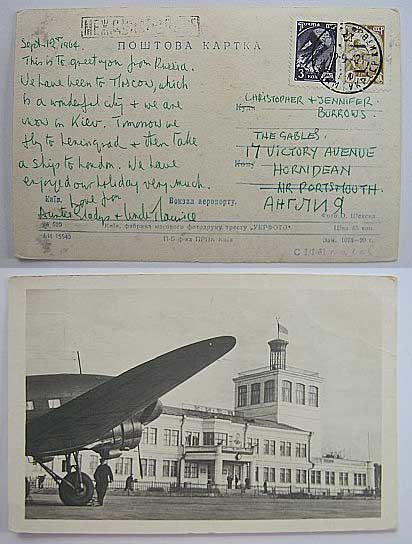 МЕЖДУ
Sept. 12th 1964.
ПОШТОВА КАРТКА
This is to greet you from Russia.
We have been to Moscow, which
is a wonderful city & we are
now in Kiev. Tomorrow we
fly to Leningrad & then take
a ship to London. We have
enjoyed our holiday very much.
Love from
Auntie Gladys & Uncle Maurice
3
КОП
Куди
CHRISTOPHER & JENNIFER
BURROWS.
THE GABLES.
17 VICTORY AVENUE
Кому
HORNDEAN
NR PORTSMOUTH.
АНГЛИЯ
Київ.
Вокзал аеропорту.
Фото О.
Київ, фабрика масового фотодруку тресту „УКРФОТО“
Ціна 45 коп.
П-6 ф-ка ПРПК Київ